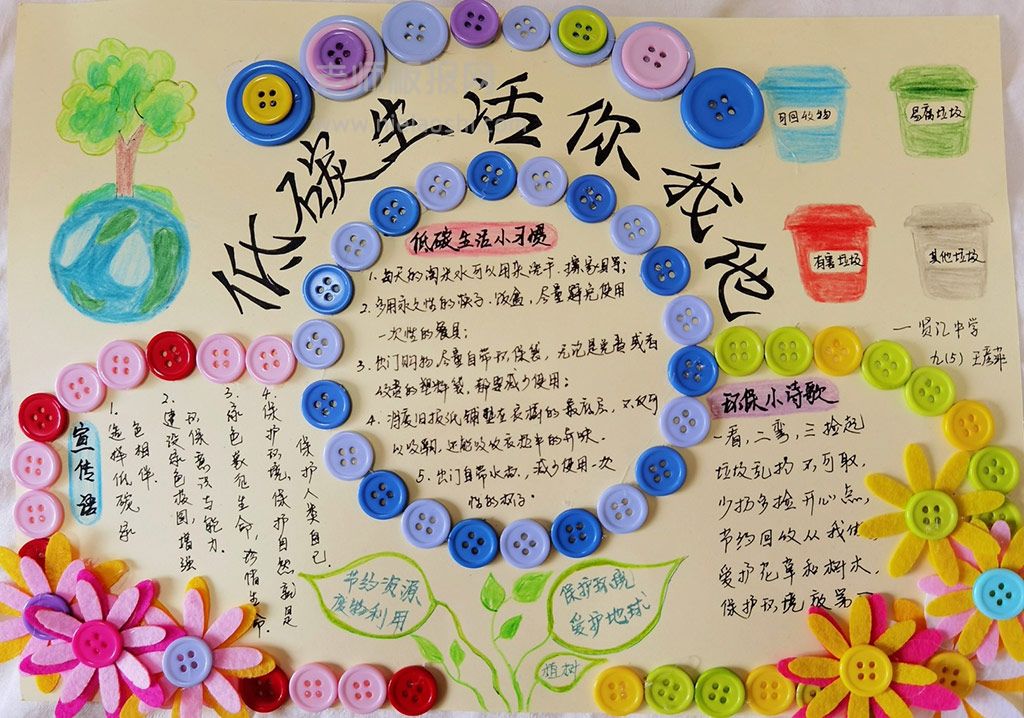 低碳生活你我他
可回收物
易腐垃圾
有害垃圾
其他垃圾
一贤汇中学
九(5)
低碳生活小习惯
1. 每天的淘米水可以用来洗手、擦家具等;
2. 多用永久性的筷子、饭盒,尽量避免使用
一次性的餐具;
3. 出门购物,尽量自带环保袋,无论是免费或者
收费的塑料袋,都要减少使用;
4. 将废旧报纸铺垫在衣橱的最底层,不仅可
以吸潮,还能吸收衣柜中的异味。
5. 出门自带水杯,减少使用一次
性的杯子。
宣传语
1. 选择低碳 绿
色相伴.
2. 建设绿色校园,增强
环保意识与能力.
3. 绿色象征生命,珍惜生命.
4. 保护环境,保护自然就是
保护人类自己.
环保小诗歌
一看,二弯,三捡起
垃圾乱扔不可取,
少扔多捡开心点,
节约回收从我
爱护花草和树木,
保护环境放第一
节约资源
废物利用
保护环境
爱护地球
植树
老师板报网